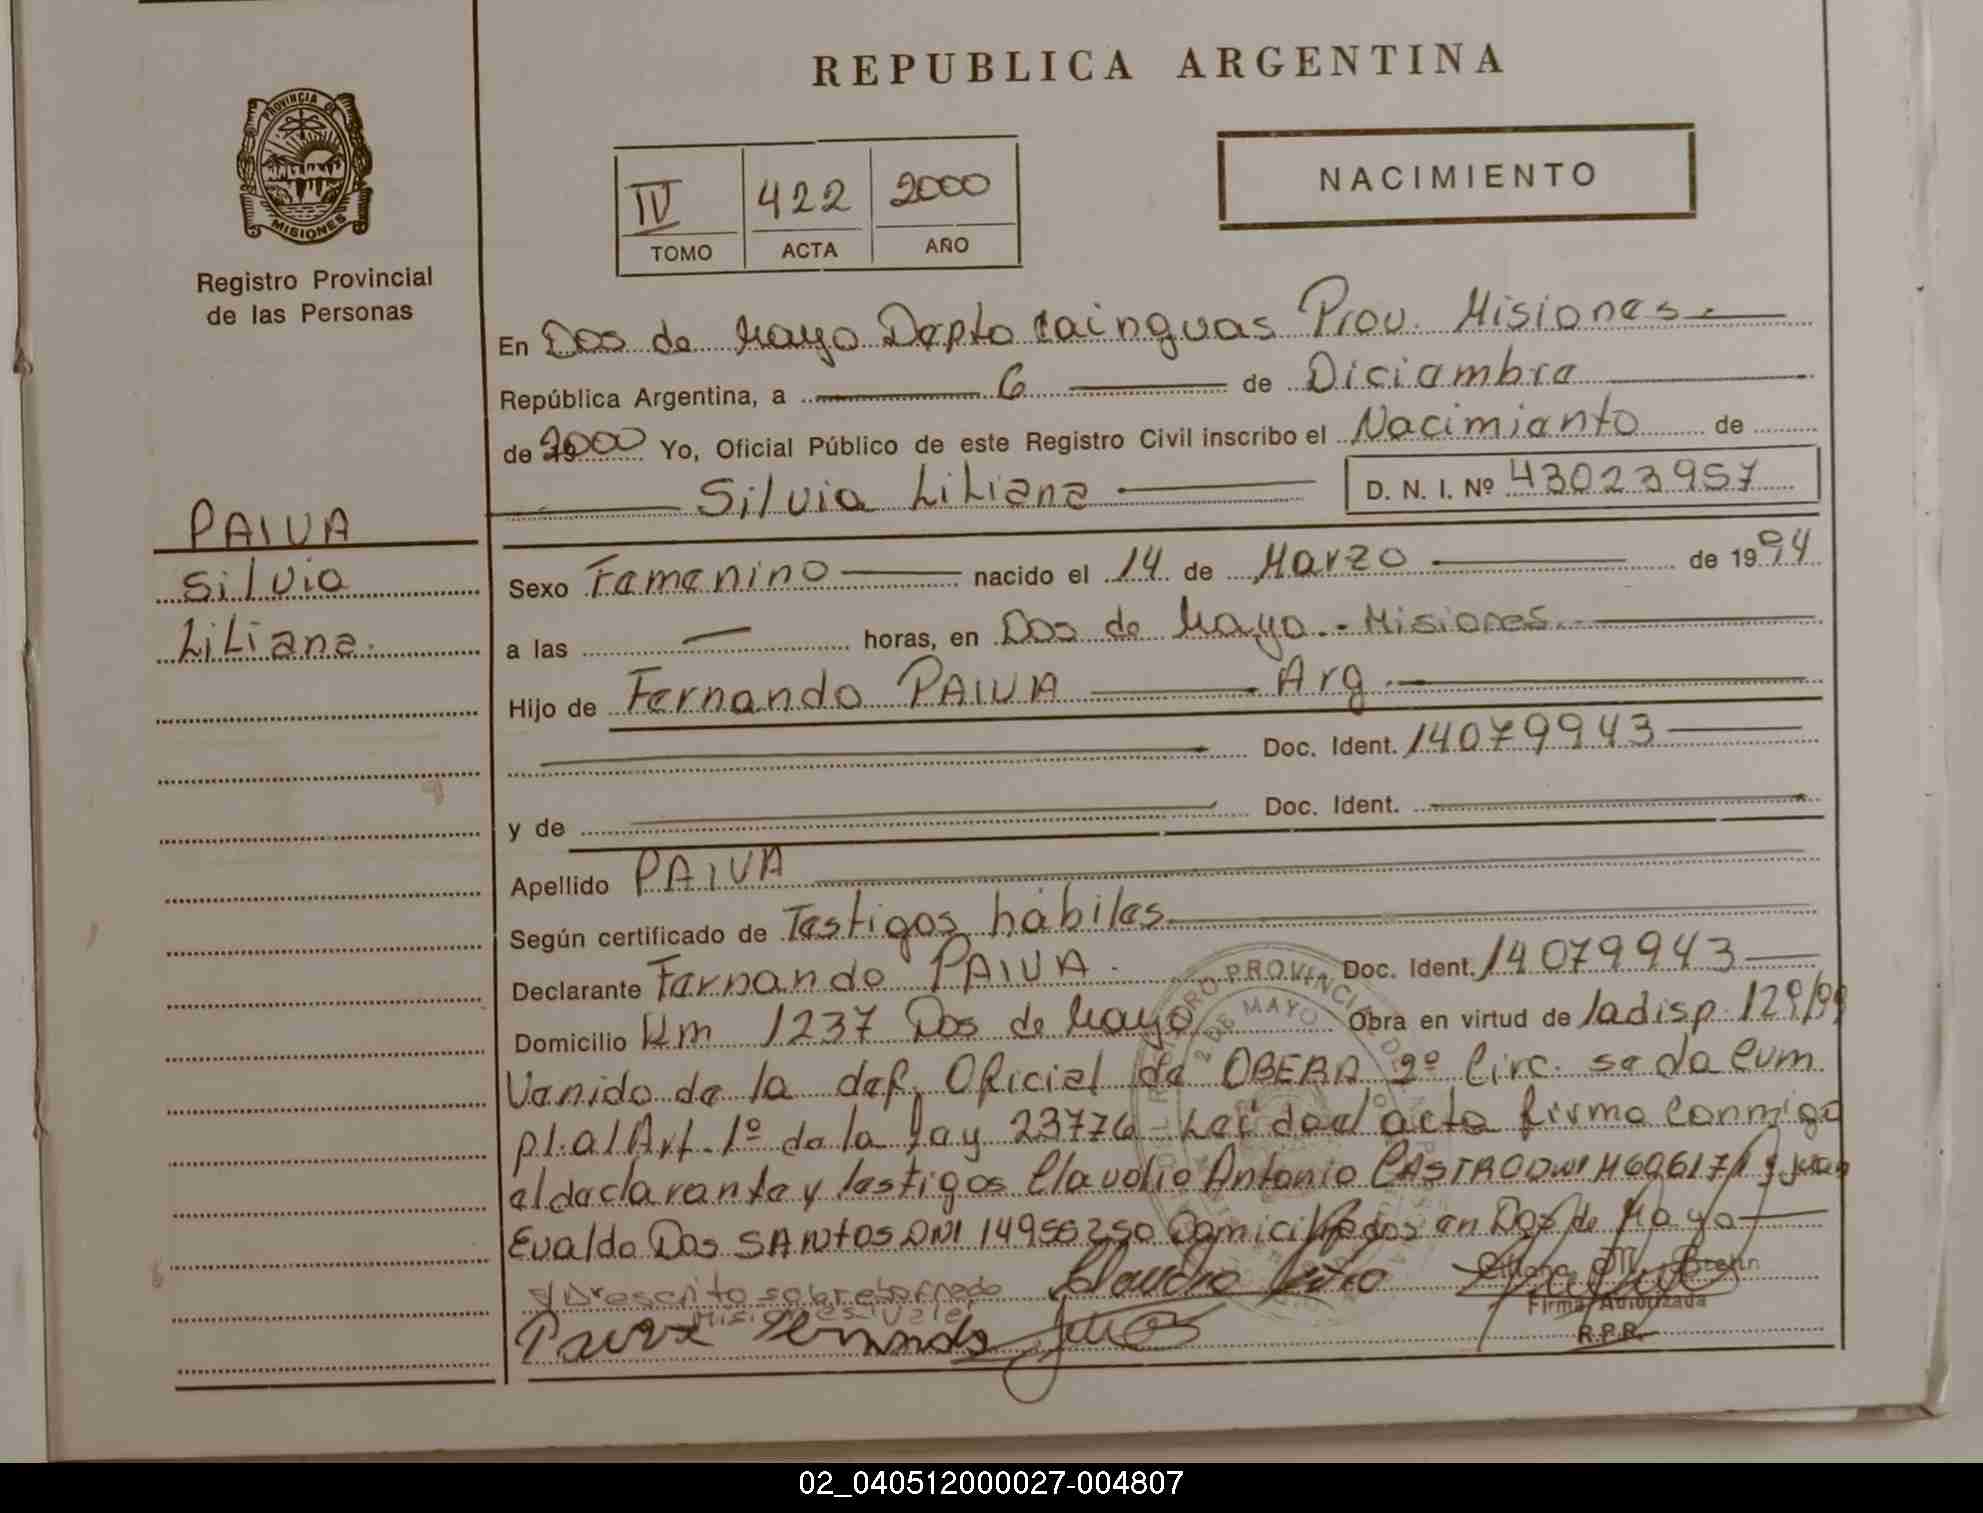 REPUBLICA ARGENTINA
PROVINCIA DE MISIONES
Registro Provincial
de las Personas
IV 422 2000
TOMO ACTA AÑO
NACIMIENTO
En Dos de Mayo Depto Cainguas Prov. Misiones
República Argentina, a 6 de Diciembre
de 2000 Yo, Oficial Público de este Registro Civil inscribo el Nacimiento de
Silvia Liliana D. N. I. Nº 43023957
PAIVA
Silvia
Liliana.
Sexo Femenino nacido el 14 de Marzo de 1994
a las — horas, en Dos de Mayo.- Misiones
Hijo de Fernando PAIVA Arg.
Doc. Ident. 14079943
y de Doc. Ident.
Apellido PAIVA
Según certificado de Testigos hábiles
Declarante Fernando PAIVA. Doc. Ident. 14079943
Domicilio Km 1237 Dos de Mayo Obra en virtud de la disp. 129/99
Venido de la def. Oficial de OBERA 2º Circ. se da Cum
pl. al Art. 1º de la Ley 23776 - Leída el acta firma conmigo
el declarante y testigos Claudio Antonio CASTRO DNI y Juan
Evaldo Dos SANTOS DNI 14956250 Domiciliados en Dos de Mayo
escrito sobre borrado
Misiones Vale
Claudio Castro
Paiva Fernando
Firma Autorizada
R.P.R.
REGISTRO PROVINCIAL DE
2 DE MAYO
02_040512000027-004807